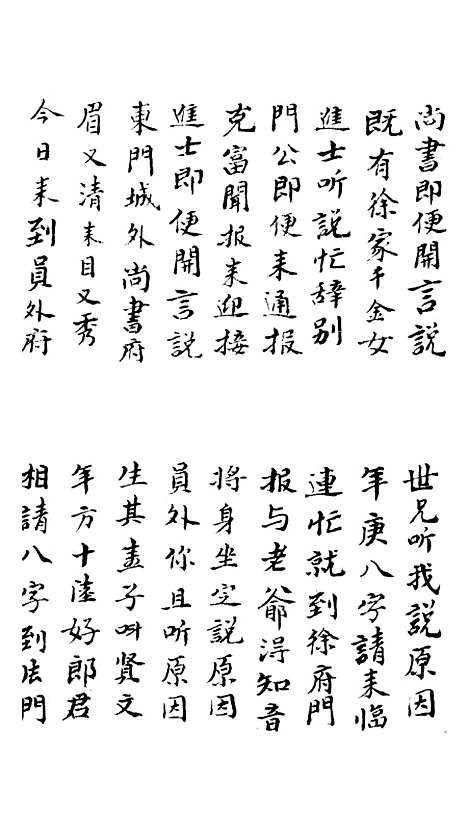 尚書即便開言説
世兄听我説原因
既有徐家千金女
年庚八字請来临
進士听説忙辞别
連忙就到徐府門
門公即便来通报
报与老爺得知音
克富聞报来迎接
将身坐定説原因
進士即便開言説
員外你且听原因
東門城外尚書府
生其壹子叫贤文
眉又清来目又秀
年方十陸好郎君
今日来到員外府
相請八字到法門